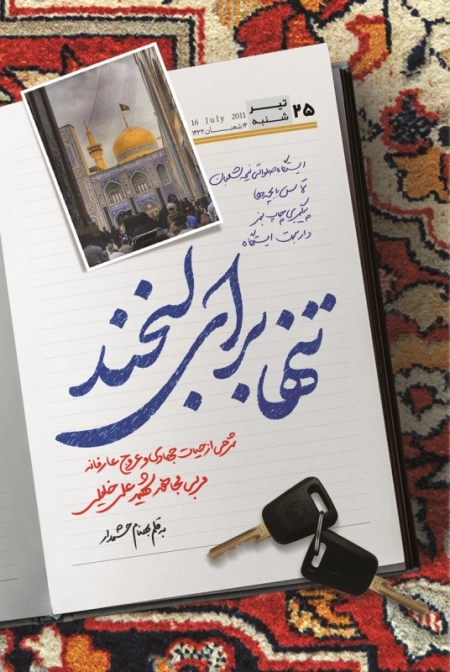 ۲۵ تیر شنبه
16 July 2011
۱۴ شعبان ۱۴۳۲
ایستگاه صلواتی نیمه شعبان
تماس با بچه ها
پیگیری چاپ بنر
داربست ایستگاه
تنها برای لبخند
شرحی از حیات جهادی و عروج عارفانه
مربی مجاهد شهید علی خلیلی
به قلم بهنام